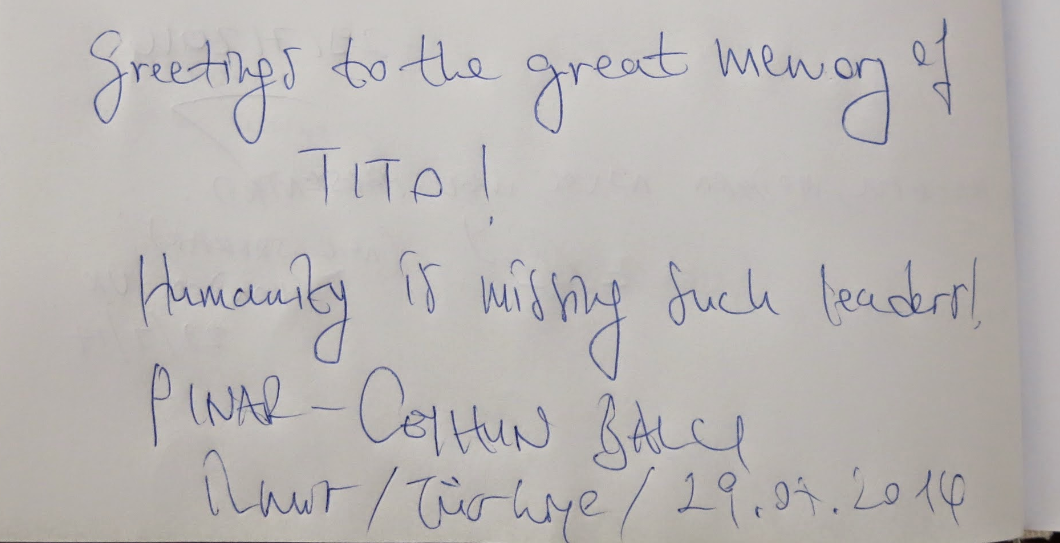 Greetings to the great memory of
TITO!
Humanity is missing such leaders!
PINAR - CEYHUN BALCI
İzmir / Türkiye / 29.07.2014